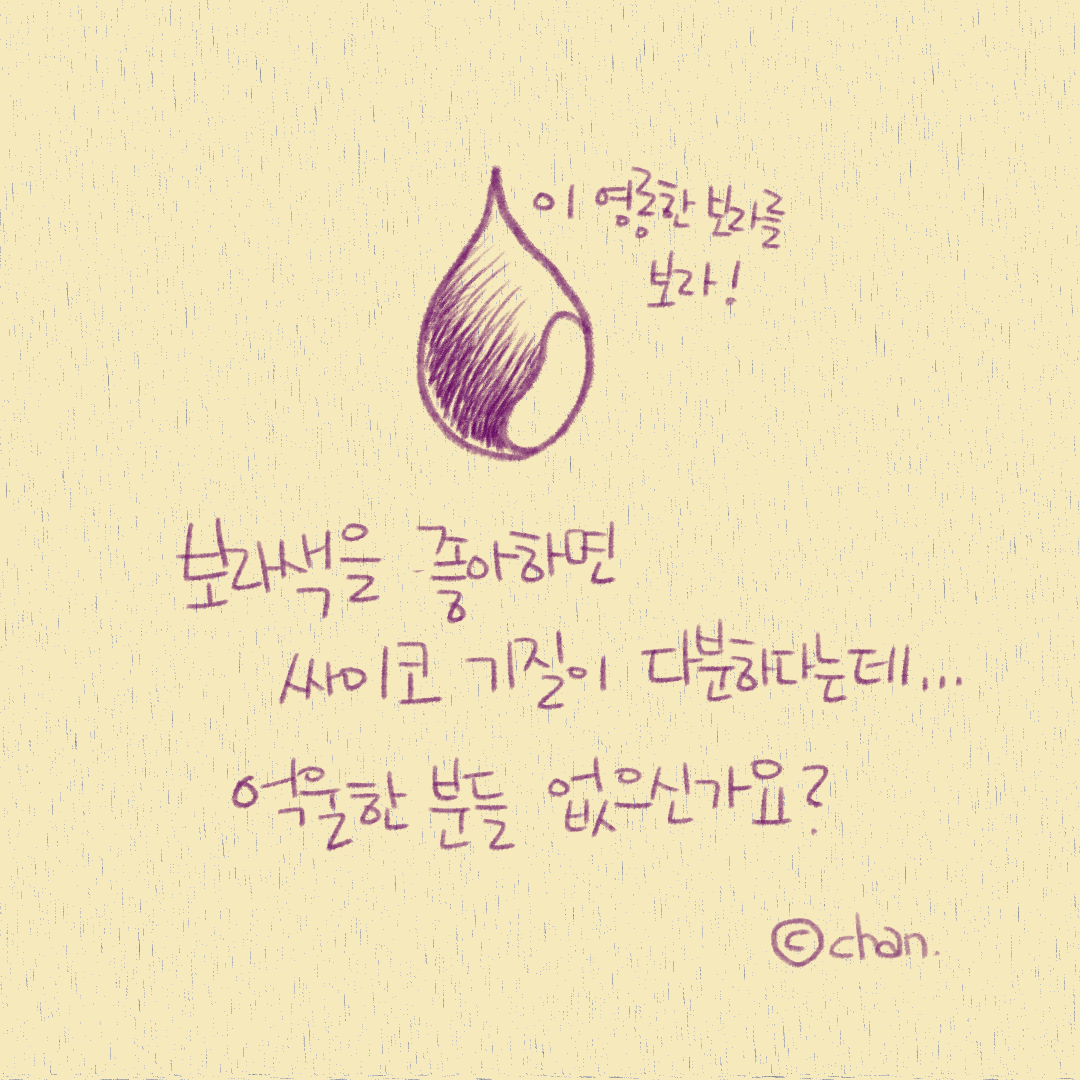 이 영롱한 보라를
보라!
보라색을 좋아하면
싸이코 기질이 다분하다는데...
억울한 분들 없으신가요?
©chan.